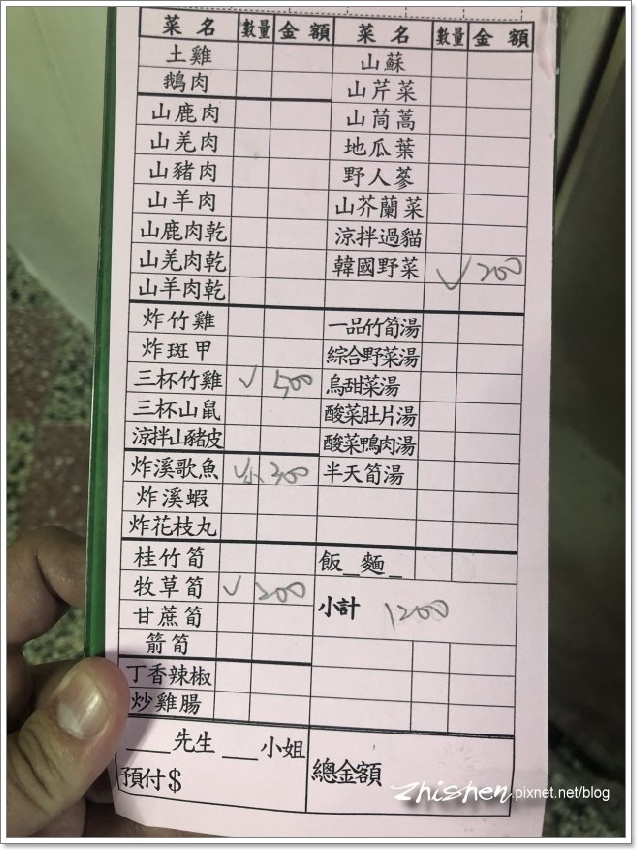 菜名 數量 金額 菜名 數量 金額
土雞 山蘇
鵝肉 山芹菜
山鹿肉 山茼蒿
山羌肉 地瓜葉
山豬肉 野人蔘
山羊肉 山芥蘭菜
山鹿肉乾 涼拌過貓
山羌肉乾 韓國野菜 ✓ 200
山羊肉乾
炸竹雞 一品竹筍湯
炸斑甲 綜合野菜湯
三杯竹雞 ✓ 500 烏甜菜湯
三杯山鼠 酸菜肚片湯
涼拌山豬皮 酸菜鴨肉湯
炸溪歌魚 ✓小 300 半天筍湯
炸溪蝦
炸花枝丸
桂竹筍 飯_麵_
牧草筍 ✓ 200 小計 1200
甘蔗筍
箭筍
丁香辣椒
炒雞腸
___先生 ___小姐 總金額
預付$
zhishen pixnet.net/blog